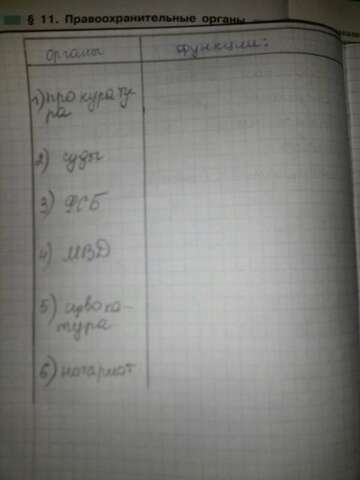 § 11. Правоохранительные органы
органы
функции:
1) прокурату-
ра
2) суды
3) ФСБ
4) МВД
5) адвока-
тура
6) нотариат